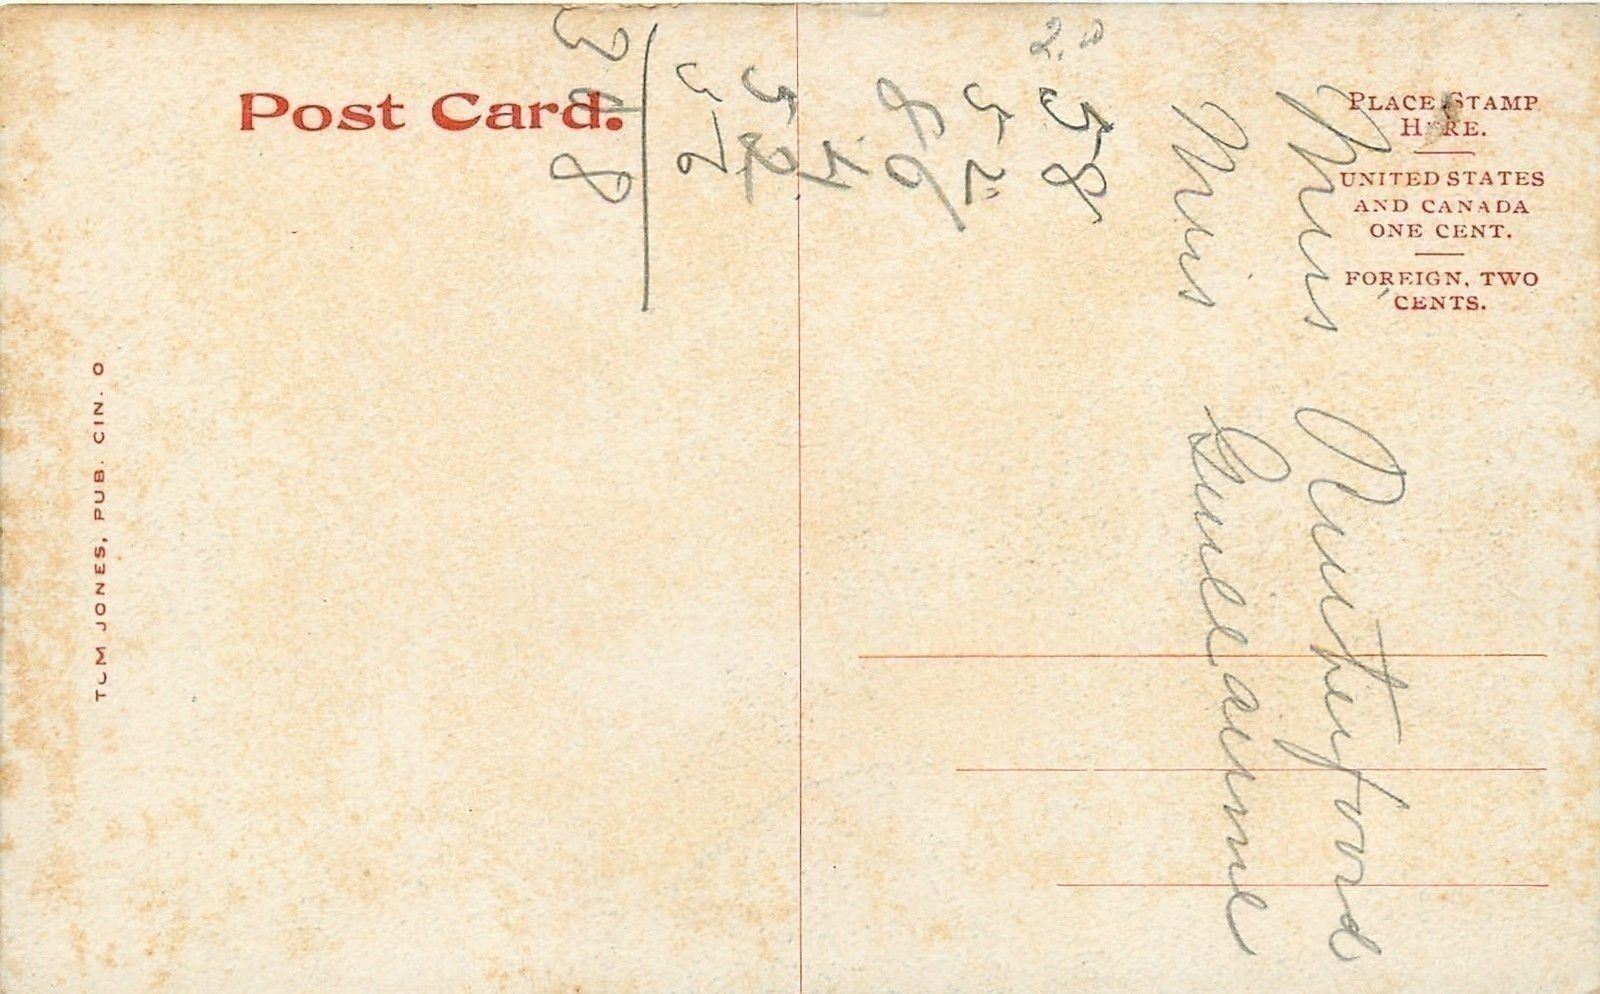 Post Card.
PLACE STAMP
HERE.
UNITED STATES
AND CANADA
ONE CENT.
FOREIGN, TWO
CENTS.
TOM JONES, PUB. CIN. O
Miss Rutherford
Miss
58
52
86
5
52
56